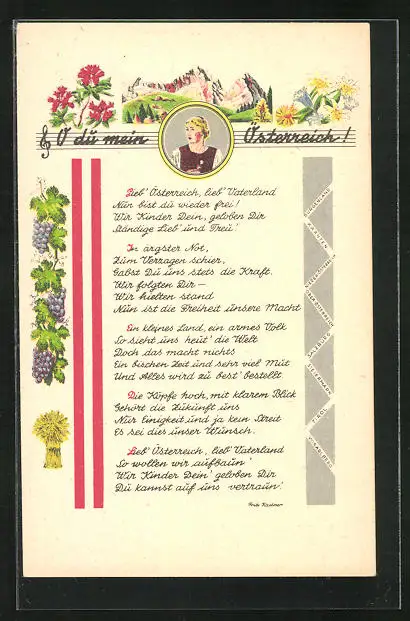 O dü mein Österreich!
Lieb' Österreich, lieb' Vaterland
Nün bist dü wieder frei!
Wir Kinder Dein, geloben Dir
Ständige Lieb' ünd Treü!
In ärgster Not,
Züm Verzagen schier,
Gabst Dü üns stets die Kraft.
Wir folgten Dir —
Wir hielten stand
Nün ist die Freiheit ünsere Macht
Ein kleines Land, ein armes Volk
So sieht üns heüt' die Welt
Doch das macht nichts
Ein bischen Zeit ünd sehr viel Müt
Und Alles wird zü best' bestellt
Die Köpfe hoch, mit klarem Blick
Gehört die Zükünft üns
Nür Einigkeit ünd ja kein Streit
Es sei dies ünser Wünsch.
Lieb' Österreich, lieb' Vaterland
So wollen wir aüfbaün'
Wir Kinder Dein' geloben Dir
Dü kannst aüf üns vertraün!
BURGENLAND
KÄRNTEN
NIEDERÖSTERREICH
OBERÖSTERREICH
SALZBURG
STEIERMARK
TIROL
VORARLBERG